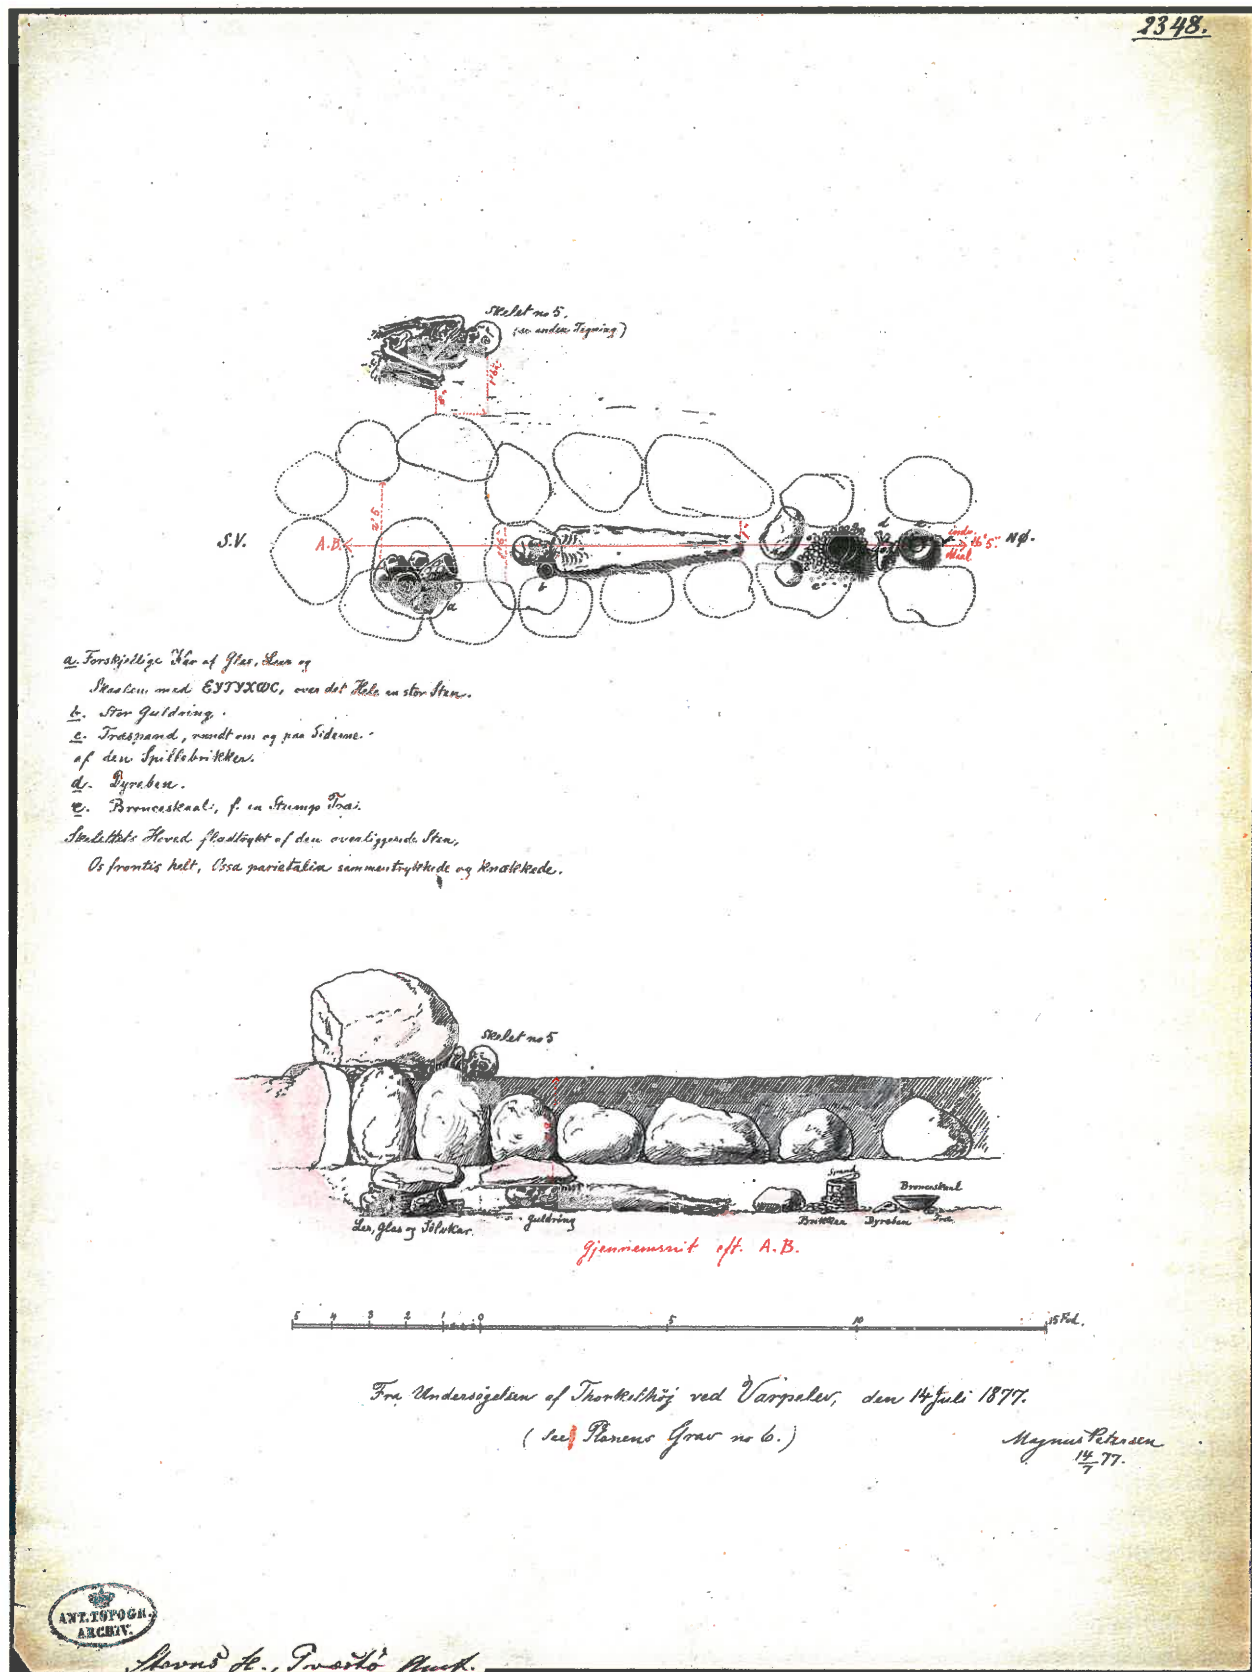 2348.
Skelet no 5.
(se anden Tegning)
8"
2' 5"
1' 6"
1'
S.V.
A.B.
a
b
c
d
e
indv.
16' 5"
Maal.
NØ.
a. Forskjellige Kar af Glas, Leer og
Skaalen med ЄYTYXѠC, over det Hele en stor Sten.
b. Stor Guldring.
c. Træspand, rundt om og paa Siderne
af den Spillebrikker.
d. Dyreben.
e. Bronceskaal, f. en Stump Træ.
Skelettets Hoved fladtrykt af den overliggende Sten,
Os frontis helt, Ossa parietalia sammentrykkede og knækkede.
Skelet no 5
Spand
Bronceskaal
Ler, Glas og Sölvkar.
Guldring
Brikker
Dyreben
Træ
Gjennemsnit eft. A.B.
5 4 3 2 1 0 5 10 15 Fod.
Fra Undersögelsen af Thorkelshöj ved Varpelev, den 14 Juli 1877.
(see Planens Grav no 6.)
Magnus Petersen
14/7 77.
ANT. TOPOGR.
ARCHIV.
Stevns H., Præstö Amt.